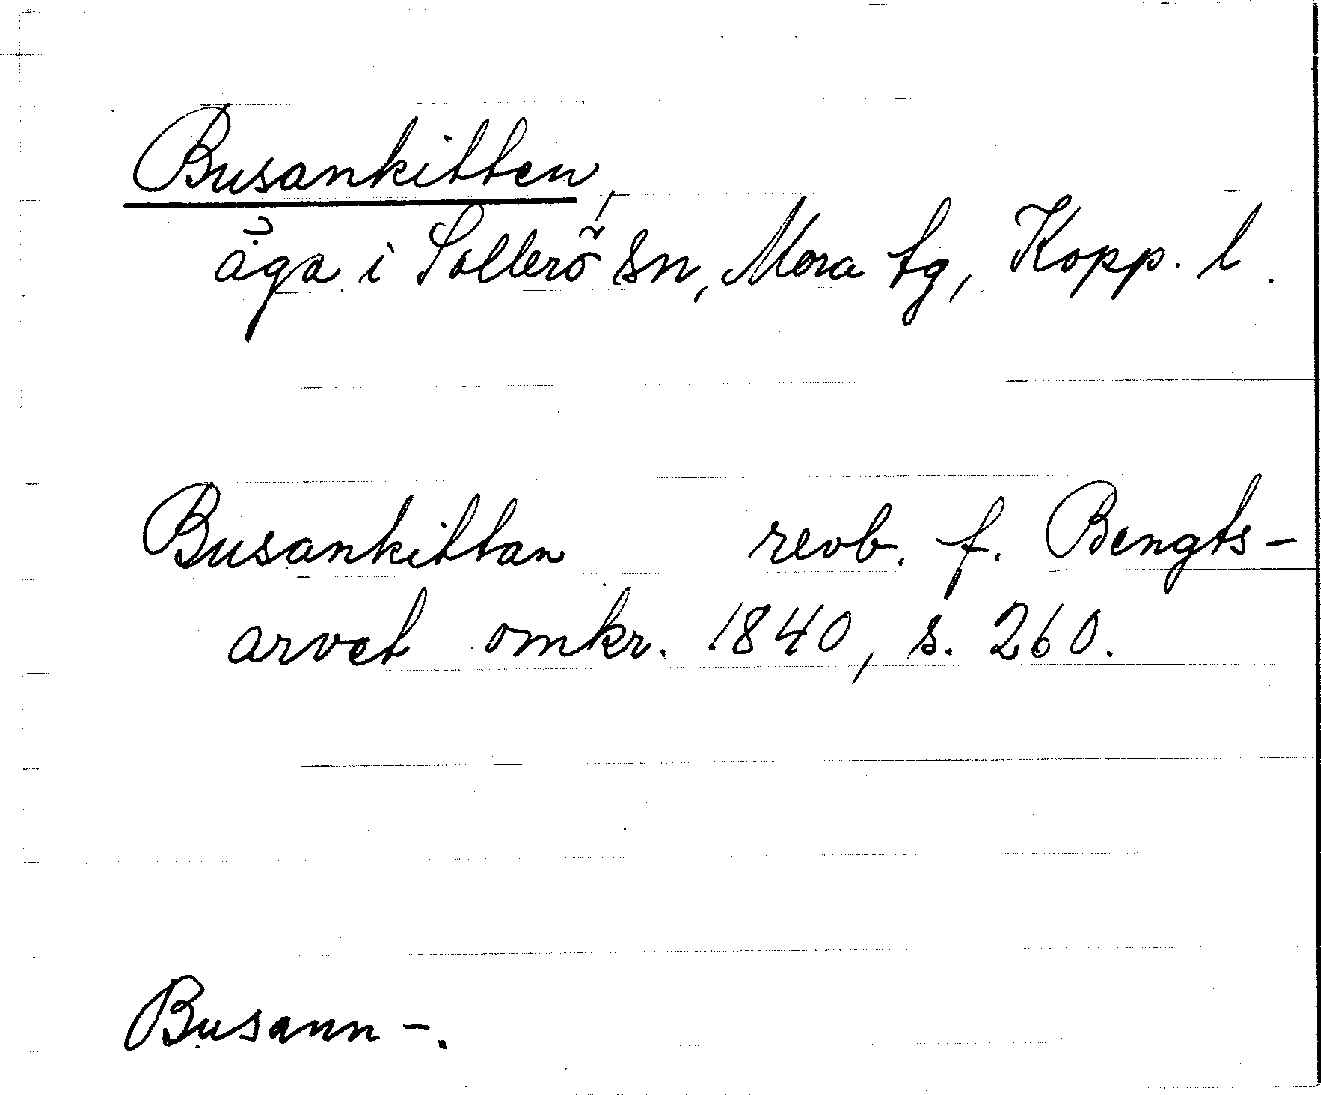 Busankitten,
äga i Sollerö sn, Mora tg, Kopp. l.
Busankittan revb. f. Bengts-
arvet omkr. 1840, s. 260.
Busann-.